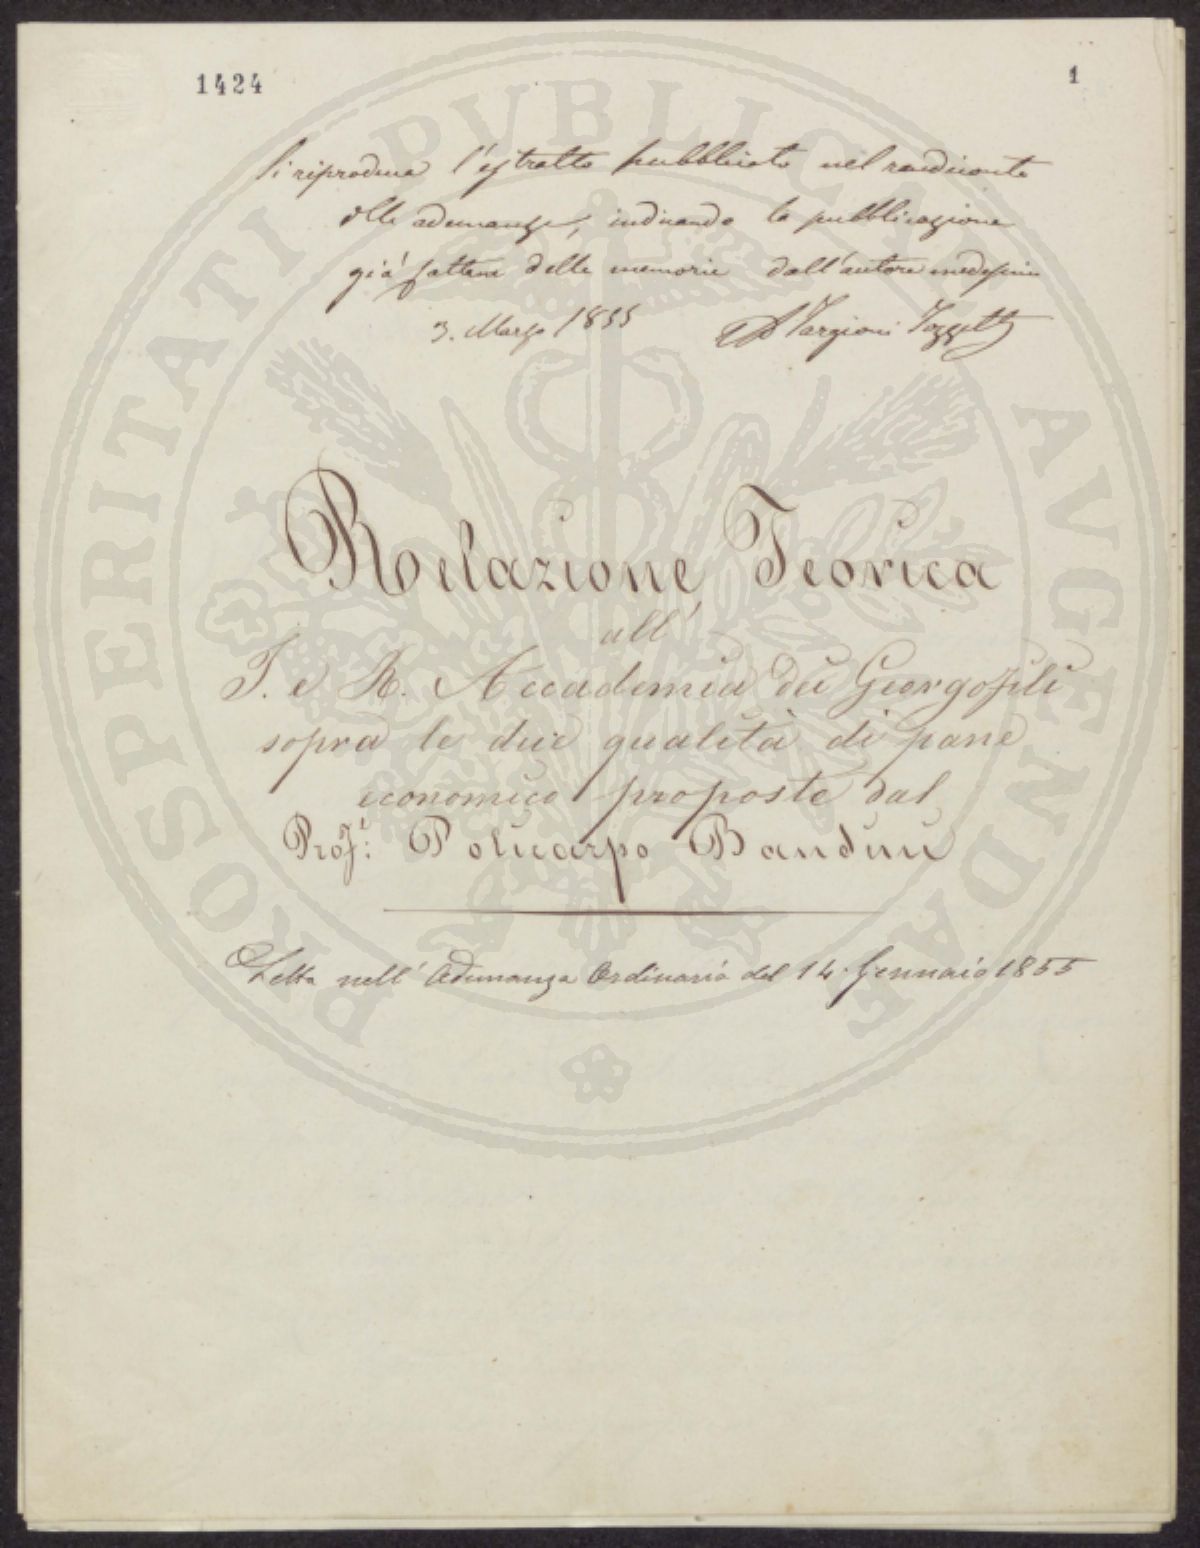 1424
1
Si riproduca l'estratto pubblicato nel rendiconto
delle adunanze, indicando la pubblicazione
già fattane delle memorie dall'autore medesimo
3. Marzo 1855 A Targioni Tozzetti
Relazione Teorica
all'
I. e R. Accademia dei Georgofili
sopra le due qualità di pane
economico proposte dal
Prof.: Policarpo Bandini
Letta nell' Adunanza Ordinaria del 14. Gennaio 1855
PROSPERITATI PUBLICAE AUGENDAE